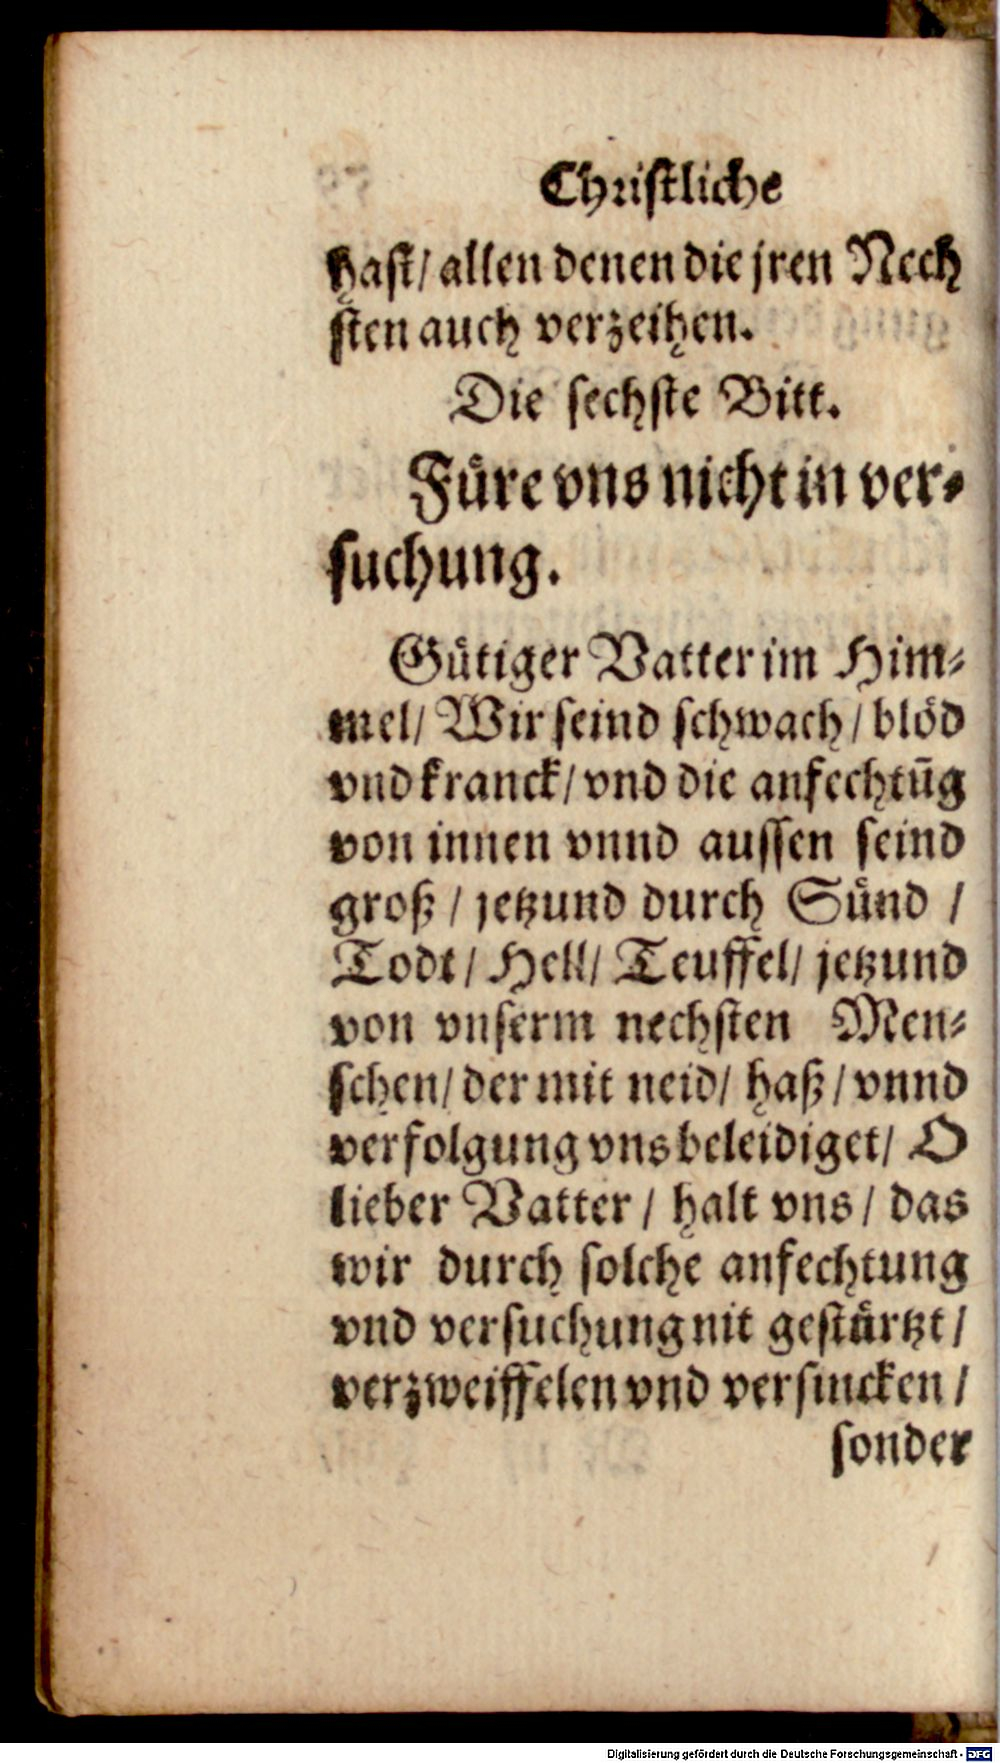 Christliche
hast/ allen denen die jren Nech
sten auch verzeihen.
Die sechste Bitt.
Füre vns nicht in ver-
suchung.
Gütiger Vatter im Him-
mel/ Wir seind schwach/ blöd
vnd kranck/ vnd die anfechtūg
von innen vnnd aussen seind
groß / jetzund durch Sünd /
Todt/ Hell/ Teuffel/ jetzund
von vnserm nechsten Men-
schen/ der mit neid/ haß/ vnnd
verfolgung vns beleidiget/ O
lieber Vatter / halt vns / das
wir durch solche anfechtung
vnd versuchung nit gestürtzt /
verzweiffelen vnd versincken /
sonder
Digitalisierung gefördert durch die Deutsche Forschungsgemeinschaft - DFG